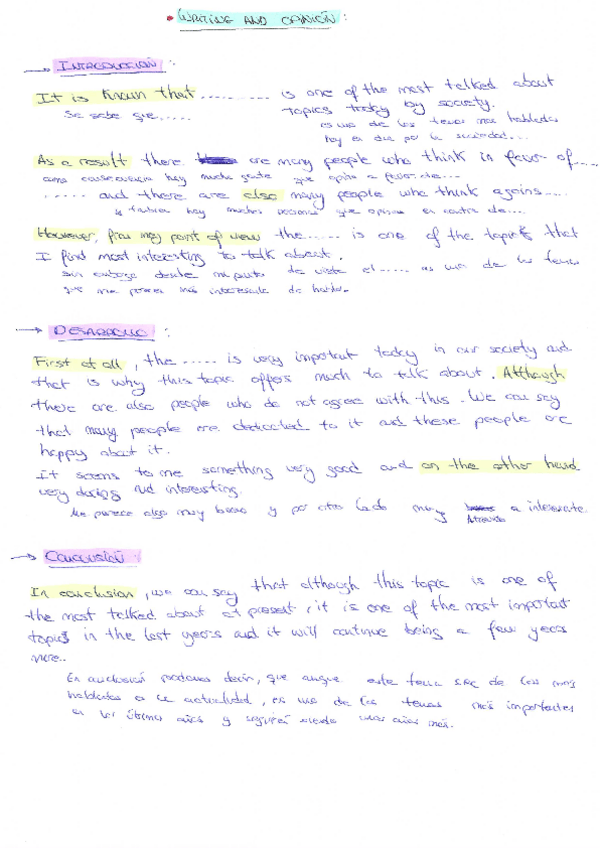 • WRITING AND OPINIÓN:
→ INTRODUCCIÓN:
It is known that .......... is one of the most talked about
topics today by society.
Se sabe que.....
es uno de los temas mas hablados
hoy en dia por la sociedad...
As a result there are many people who think in favor of....
como consecuencia hay mucha gente que opina a favor de...
...... and there are also many people who think agains....
y tambien hay muchas personas que opinan en contra de...
However, from my point of view the...... is one of the topics that
I find most interesting to talk about.
sin embargo desde mi punto de vista el ..... es uno de los temas
que me parece más interesante de hablar.
→ DESARROLLO:
First of all, the ..... is very important today in our society and
that is why this topic offers much to talk about. Although
there are also people who do not agree with this. We can say
that many people are dedicated to it and these people are
happy about it.
It seems to me something very good and on the other hand
very daring and interesting.
Me parece algo muy bueno y por otro lado muy Atrevido e interesante.
→ CONCLUSIÓN:
In conclusion, we can say that although this topic is one of
the most talked about at present, it is one of the most important
topics in the last years and it will continue being a few years
more.
En conclusión podemos decir, que aunque este tema sea de los más
hablados en la actualidad, es uno de los temas más importantes
en los últimos años y seguirá siendo unos años más.